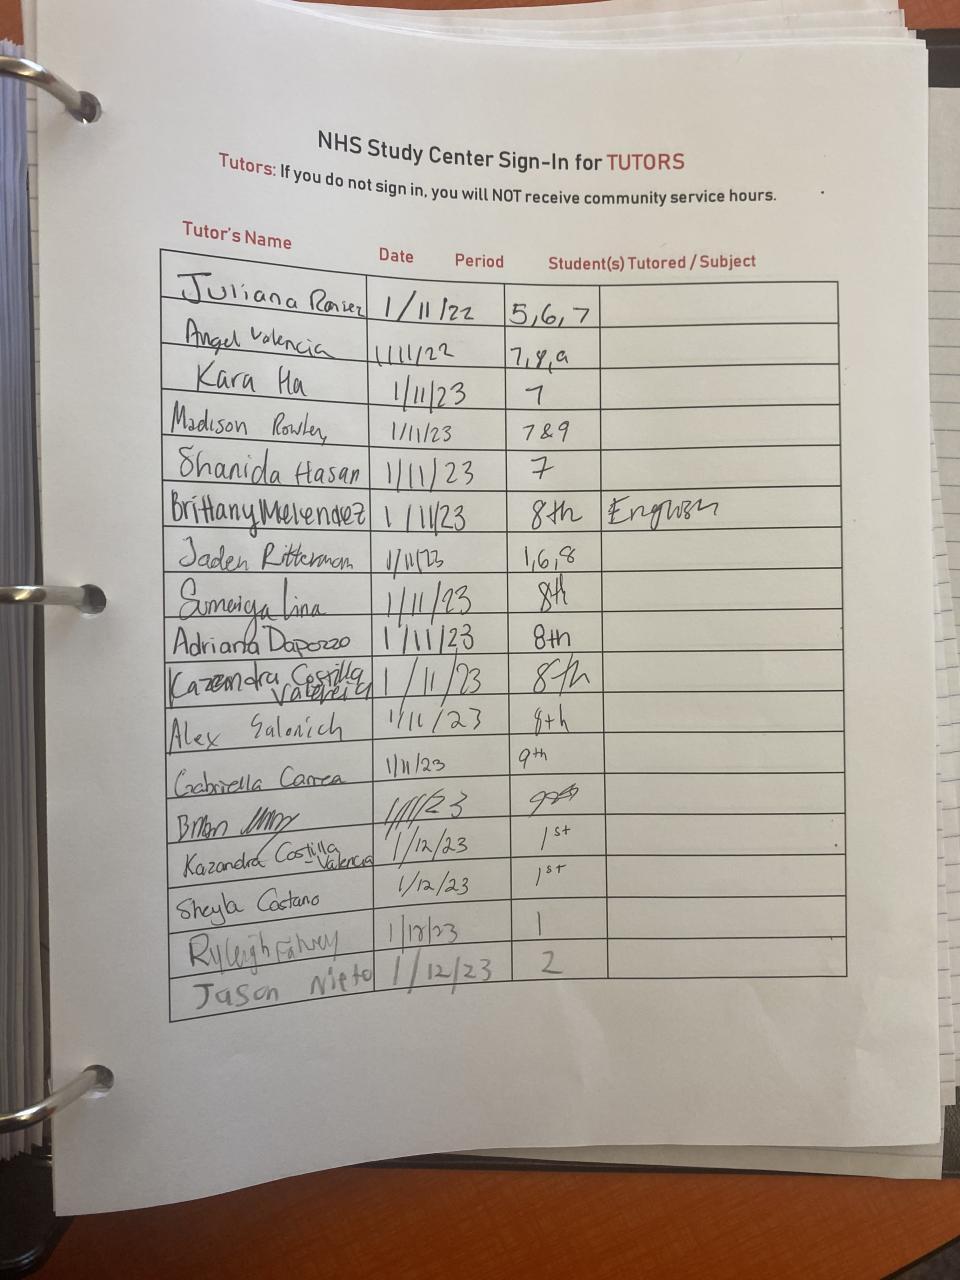 NHS Study Center Sign-In for TUTORS
Tutors: If you do not sign in, you will NOT receive community service hours.
Tutor's Name Date Period Student(s) Tutored / Subject
Juliana 1/11/22 5,6,7
Angel Valencia 1/11/22 7,8,9
Kara Ha 1/11/23 7
Madison Rowley 1/11/23 7&9
Shanida Hasan 1/11/23 7
Brittany Melendez 1/11/23 8th English
Jaden Ritterman 1/11/23 1,6,8
Lina 1/11/23 8th
Adriana Dapozzo 1/11/23 8th
Kazandra Costilla Valencia 1/11/23 8th
Alex 1/11/23 8th
Gabriella Correa 1/11/23 9th
1/11/23
Kazandra Costilla Valencia 1/12/23 1st
Sheyla Castano 1/12/23 1st
Ryleigh Fahey 1/12/23 1
Jason Nieto 1/12/23 2